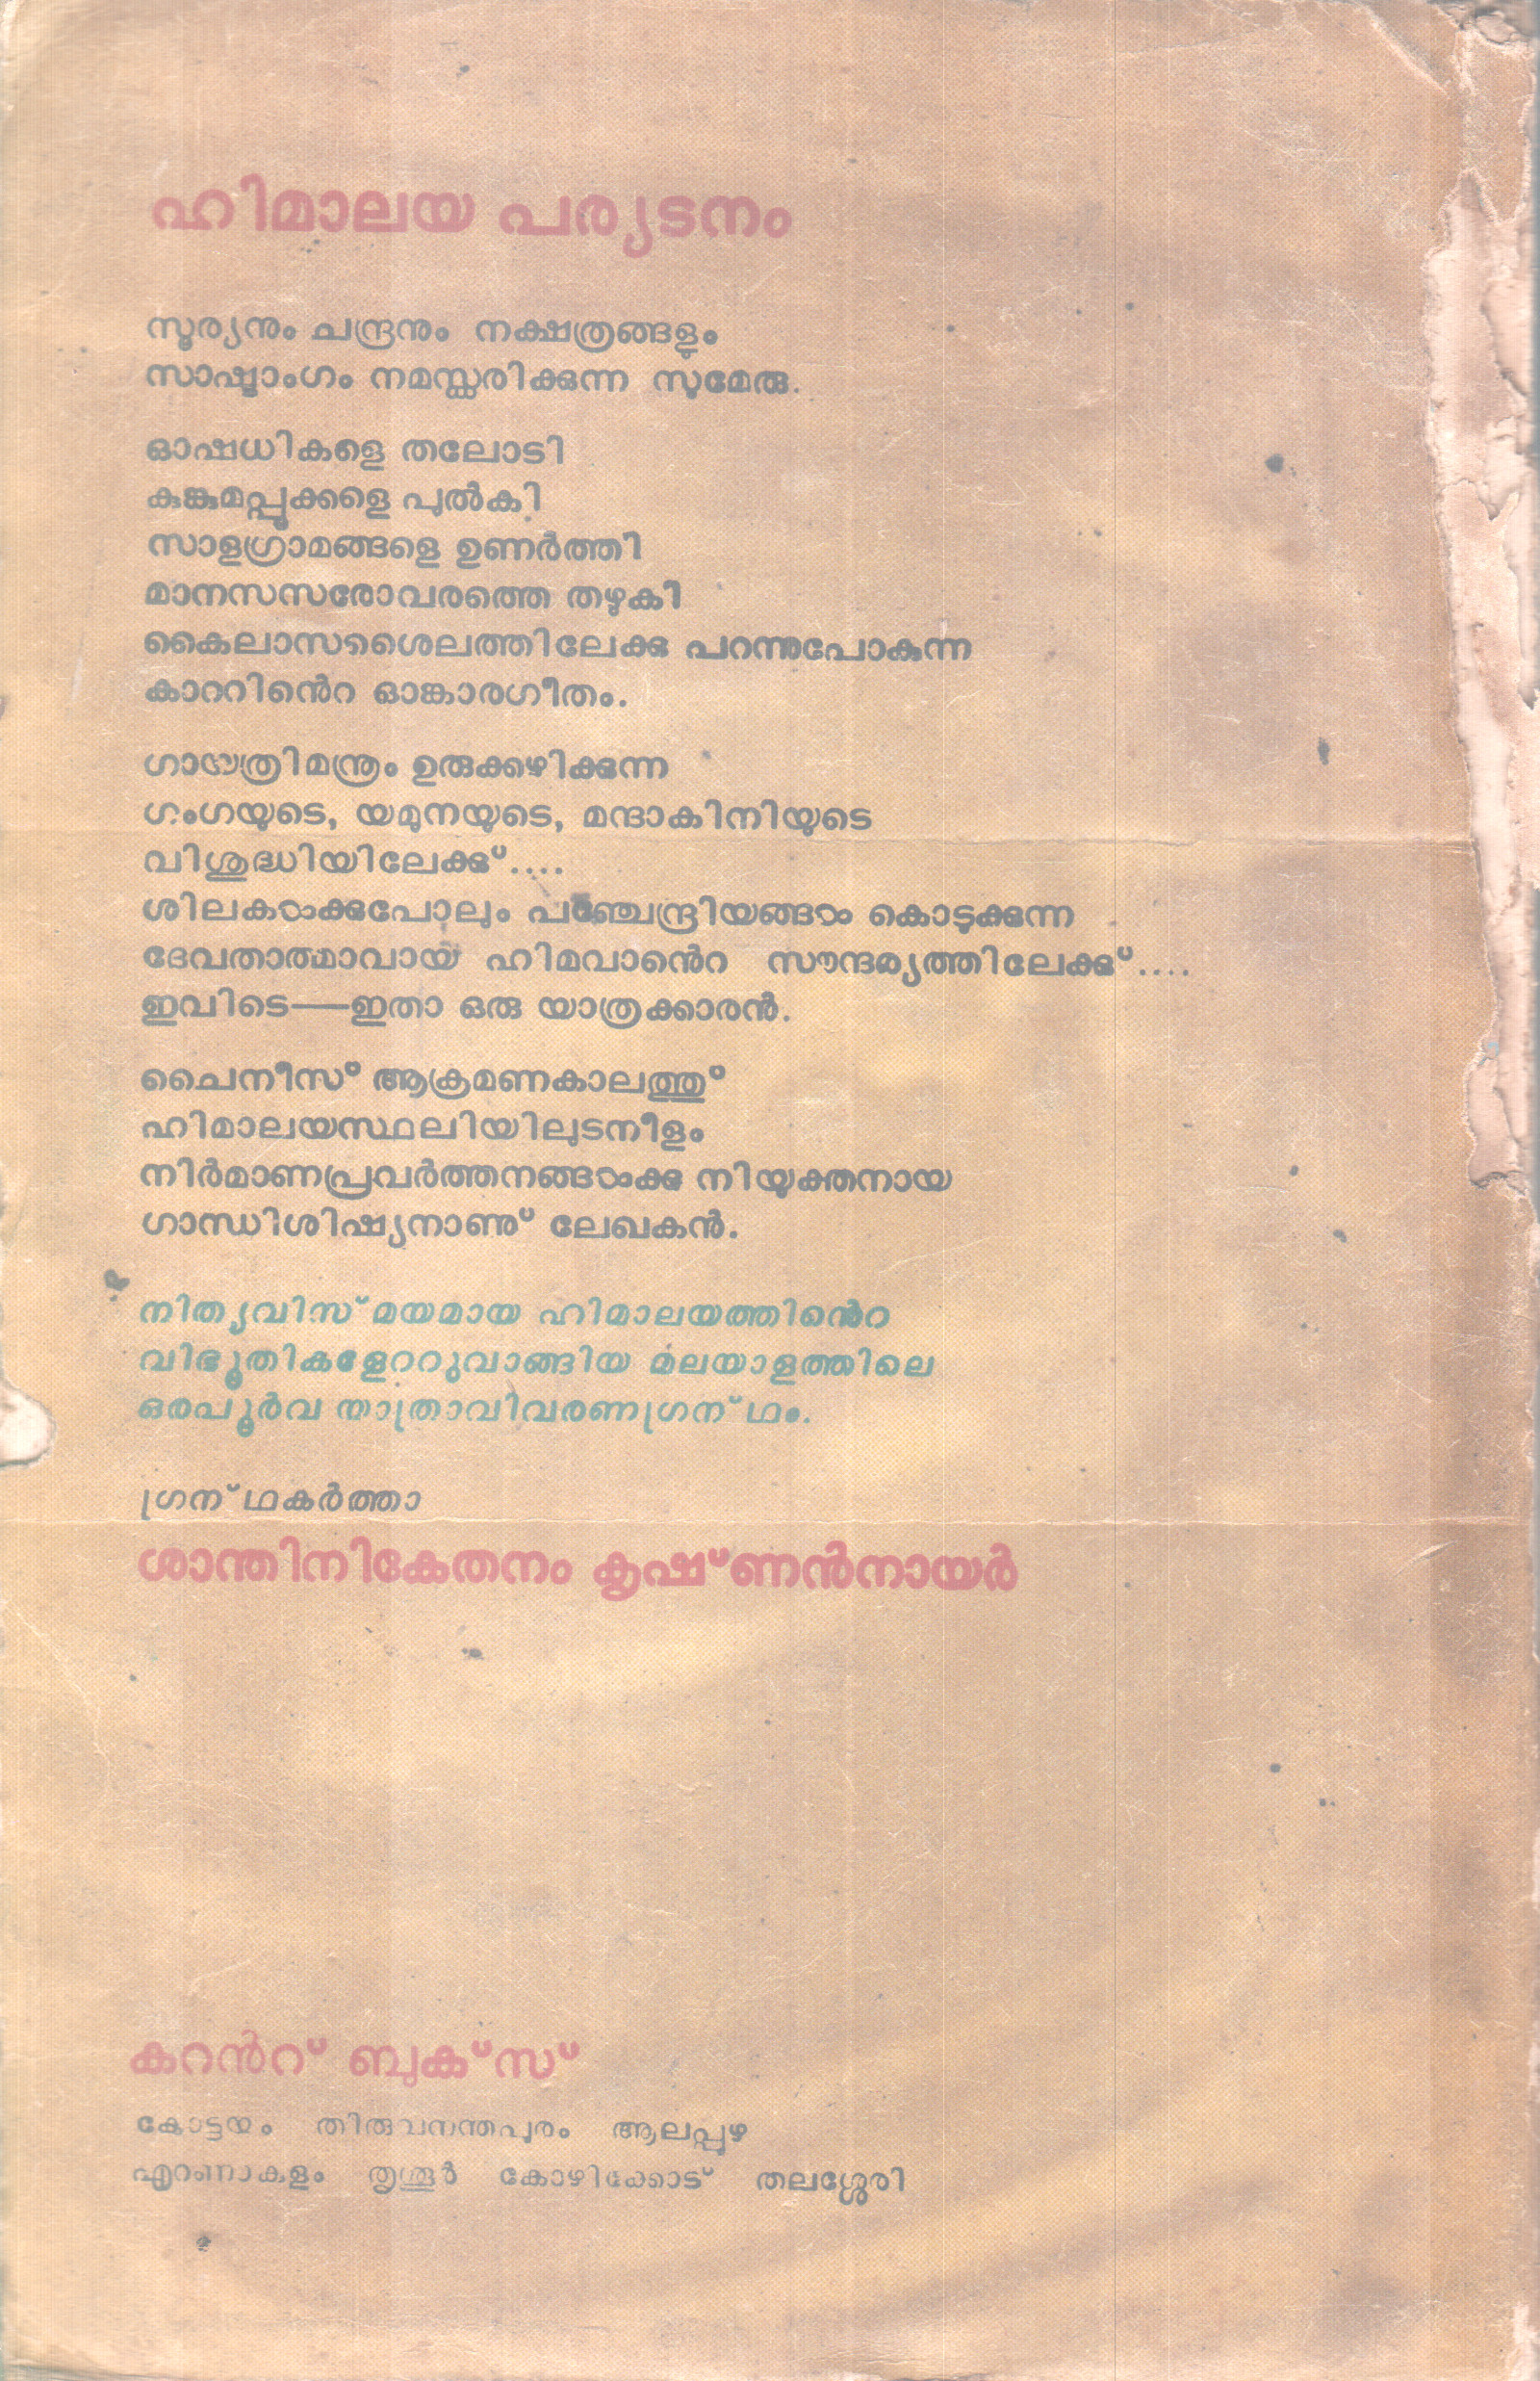 ഹിമാലയ പര്യടനം
സൂര്യനും ചന്ദ്രനും നക്ഷത്രങ്ങളും
സാഷ്ടാംഗം നമസ്ക്കരിക്കുന്ന സുമേരു.
ഓഷധികളെ തലോടി
കുങ്കുമപ്പൂക്കളെ പുൽകി
സാളഗ്രാമങ്ങളെ ഉണർത്തി
മാനസസരോവരത്തെ തഴുകി
കൈലാസശൈലത്തിലേക്കു പറന്നുപോകുന്ന
കാററിൻെറ ഓങ്കാരഗീതം.
ഗായത്രിമന്ത്രം ഉരുക്കഴിക്കുന്ന
ഗംഗയുടെ, യമുനയുടെ, മന്ദാകിനിയുടെ
വിശുദ്ധിയിലേക്കു്....
ശിലകൾക്കുപോലും പഞ്ചേന്ദ്രിയങ്ങൾ കൊടുക്കുന്ന
ദേവതാത്മാവായ ഹിമവാൻെറ സൗന്ദര്യത്തിലേക്കു്....
ഇവിടെ—ഇതാ ഒരു യാത്രക്കാരൻ.
ചൈനീസ് ആക്രമണകാലത്തു്
ഹിമാലയസ്ഥലിയിലുടനീളം
നിർമാണപ്രവർത്തനങ്ങൾക്കു നിയുക്തനായ
ഗാന്ധിശിഷ്യനാണു് ലേഖകൻ.
നിത്യവിസ്മയമായ ഹിമാലയത്തിൻെറ
വിഭൂതികളേററുവാങ്ങിയ മലയാളത്തിലെ
ഒരപൂർവ യാത്രാവിവരണഗ്രന്ഥം.
ഗ്രന്ഥകർത്താ
ശാന്തിനികേതനം കൃഷ്ണൻനായർ
കറൻറ് ബുക്സ്
കോട്ടയം തിരുവനന്തപുരം ആലപ്പുഴ
എറണാകുളം തൃശൂർ കോഴിക്കോട് തലശ്ശേരി